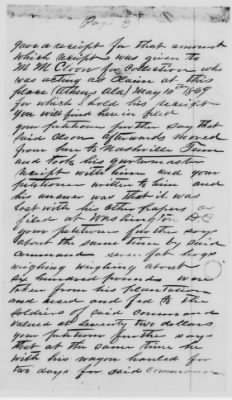 Page 3
gave a receipt for that amount
which receipt was given to
M M for collection who
was acting as Claim at this
place (Athens Ala) May 10th 1869
for which I hold his receipt
You will find herein filed
your petitioner further say that
said afterwards moved
from here to Nashville Tenn
and took his quartermaster
receipt with him and your
petitioner written to him and
his answer was that it was
lost with his other papers or
filed at Washington D C
Your petitioner further says
about the same time by said
command seven fat hogs
weighing about
six hundred pounds were
taken from his plantation
and used and fed to the
soldiers of said command
valued at seventy two dollars
your petitioner further says
that at the same time he
with his wagon hauled for
two days for said